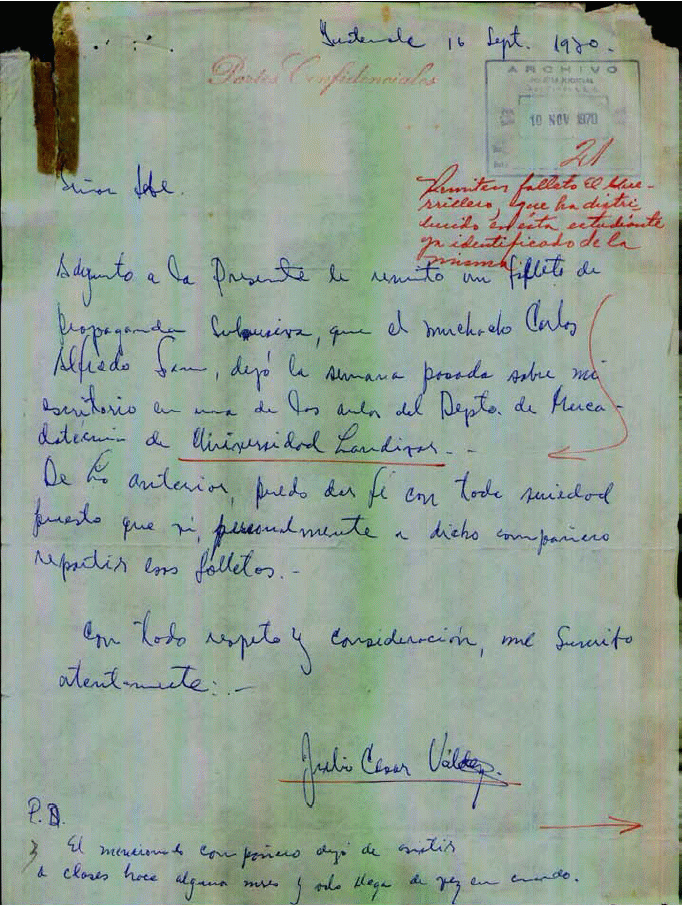 Guatemala 16 Sept. 1970.
Partes Confidenciales
ARCHIVO
10 NOV 1970
21
Señor Jefe.
Remiten folleto El Gue-
rrillero, que ha distri-
buido en ésta estudiante
ya identificado de la
misma
Adjunto a la Presente le remito un folleto de
propaganda Subversiva, que el muchacho Carlos
Alfredo, dejó la semana pasada sobre mi
escritorio en una de las aulas del Depto. de Merca-
dotecnia de Universidad Landivar. -
De lo anterior, puedo dar fé con toda seriedad
puesto que vi, personalmente a dicho compañero
repartir esos folletos. -
Con todo respeto y consideración, me Suscribo
atentamente: . -
Julio Cesar Váldez
P.D.
El mencionado compañero dejó de asistir
a clases hace algunos meses y solo llega de vez en cuando.